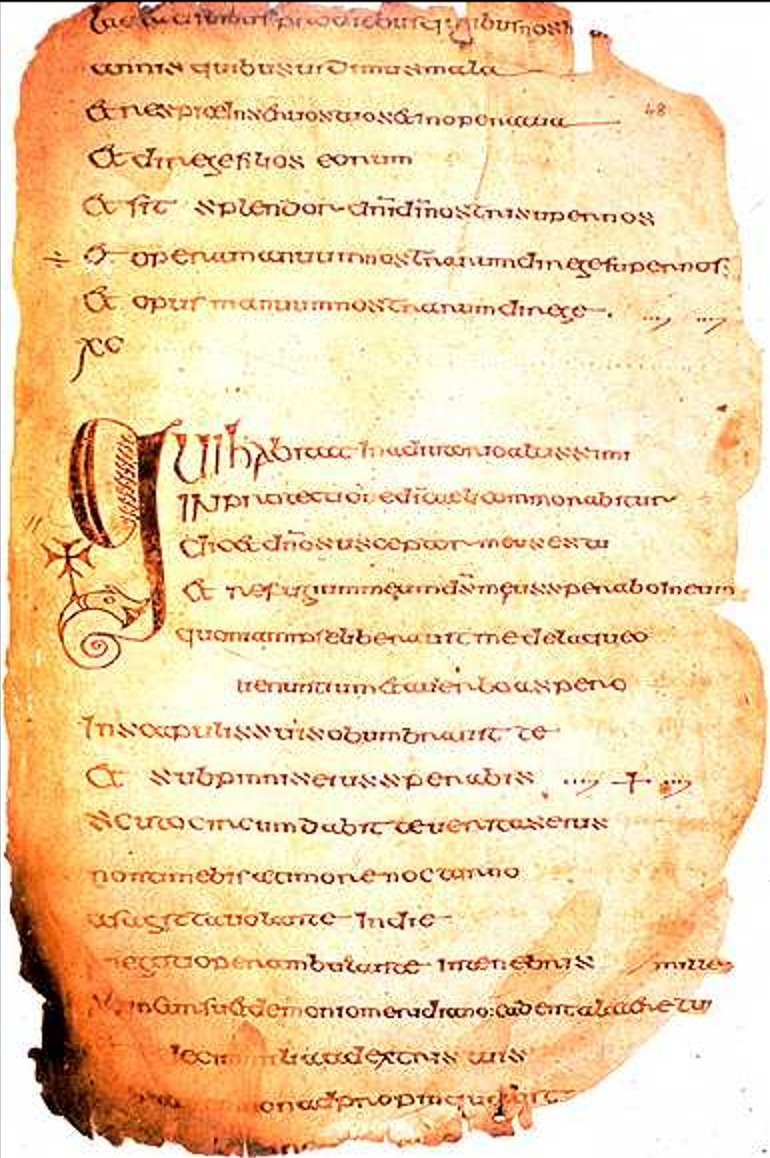 prodiebus quibus nos h
annis quibus uidimus mala
Et respice in seruos tuos & in opera tua
Et dirige filios eorum
Et sit splendor dn̄i dī nostri super nos
÷ Et opera manuum nostrarum dirige super nos:
Et opus manuum nostrarum dirige .
xc
Qui habitat in adiutorio altissimi
IN protectione dī caeli commorabitur
Dic& dn̄o susceptor meus es tu
Et refugium meum ds̄ meus sperabo in eum
quoniam ipse liberauit me de laqueo
uenantium & a uerbo aspero
In scapulis suis obumbrauit te
Et sub pinnis eius sperabis
scuto circumdabit te ueritas eius
non timebis a timore nocturno
a sagitta uolante in die
negotio perambulante in tenebris / mille
demonio meridiano: cadent a latere tuo
decem milia a dextris tuis
non adpropinquabit
48